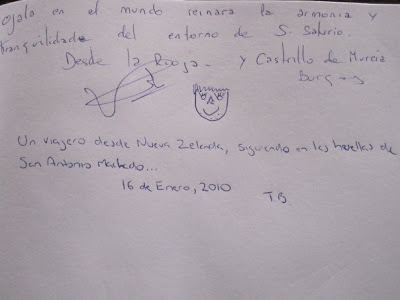 Ojala en el mundo reinara la armonia y
tranquilidad del entorno de S. Saturio.
Desde la Rioja. y Castrillo de Murcia
Burgos
Un viajero desde Nueva Zelanda, siguiendo en las huellas de
San Antonio Machado...
16 de Enero, 2010
T B.